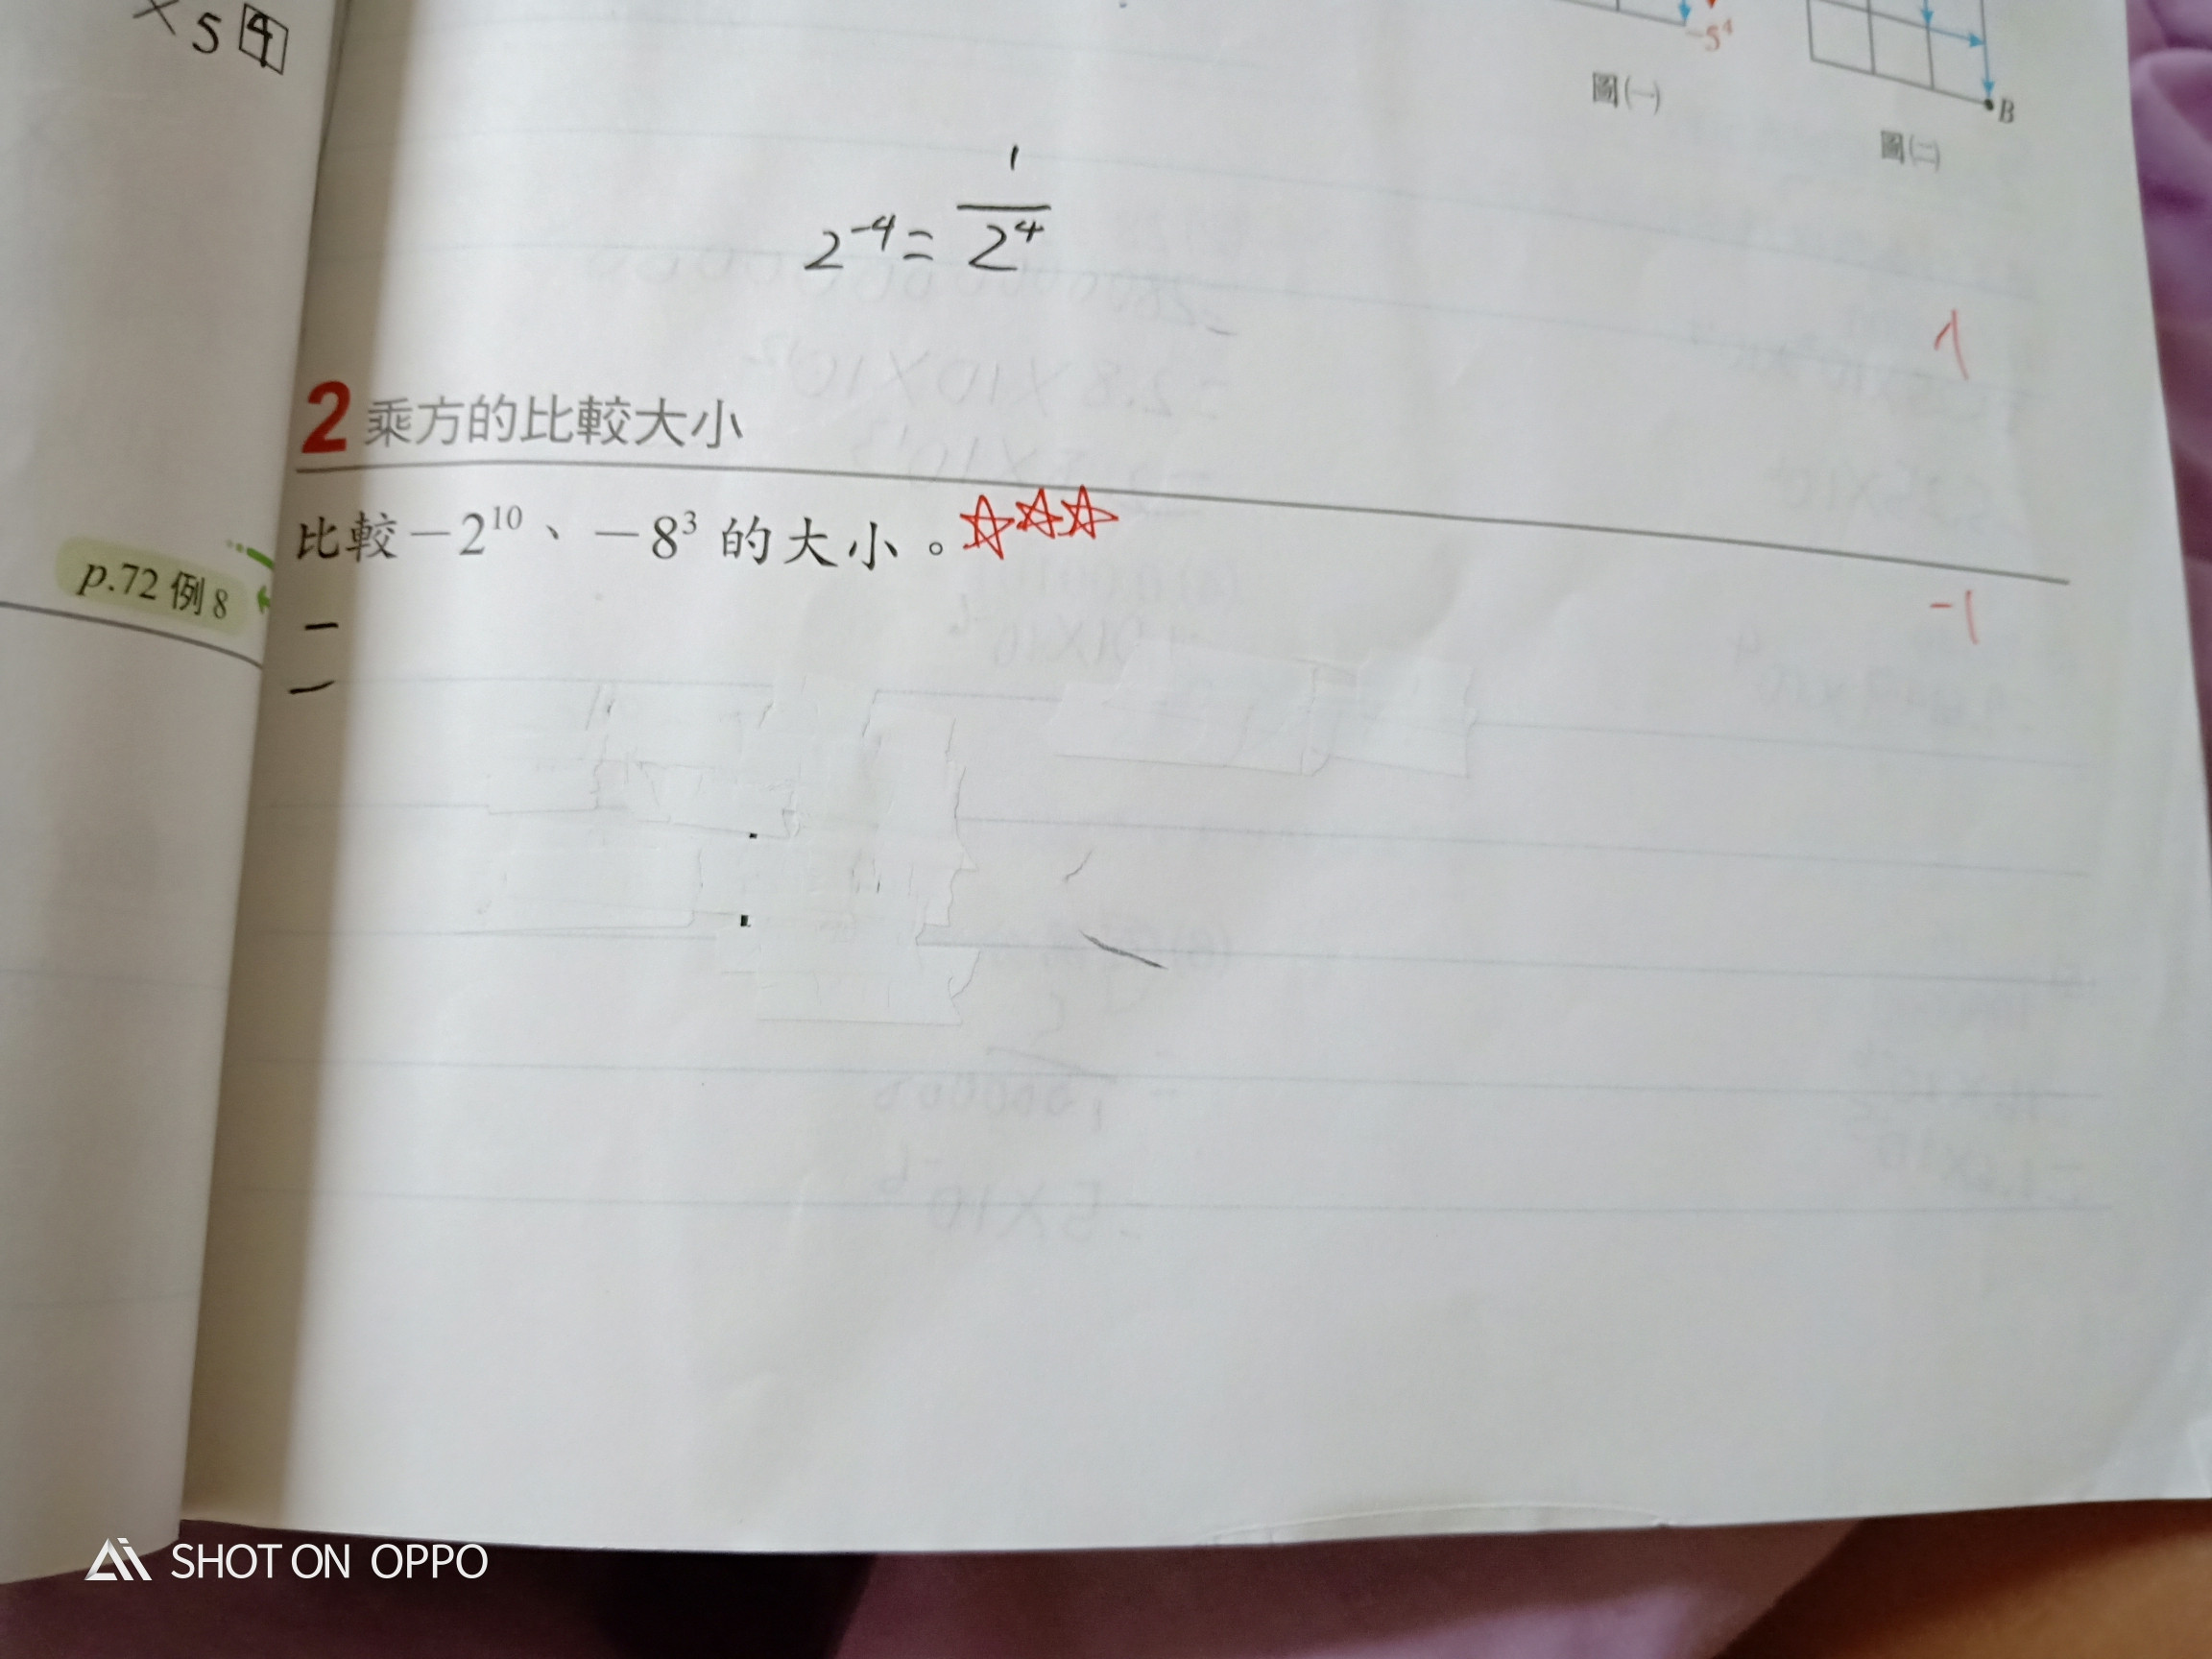 ×5[4]
-5⁴
圖(一)
B
圖(二)
2⁻⁴ = 1/2⁴
1
2 乘方的比較大小
比較－2¹⁰、－8³ 的大小。☆☆☆
p.72 例 8
-1
SHOT ON OPPO